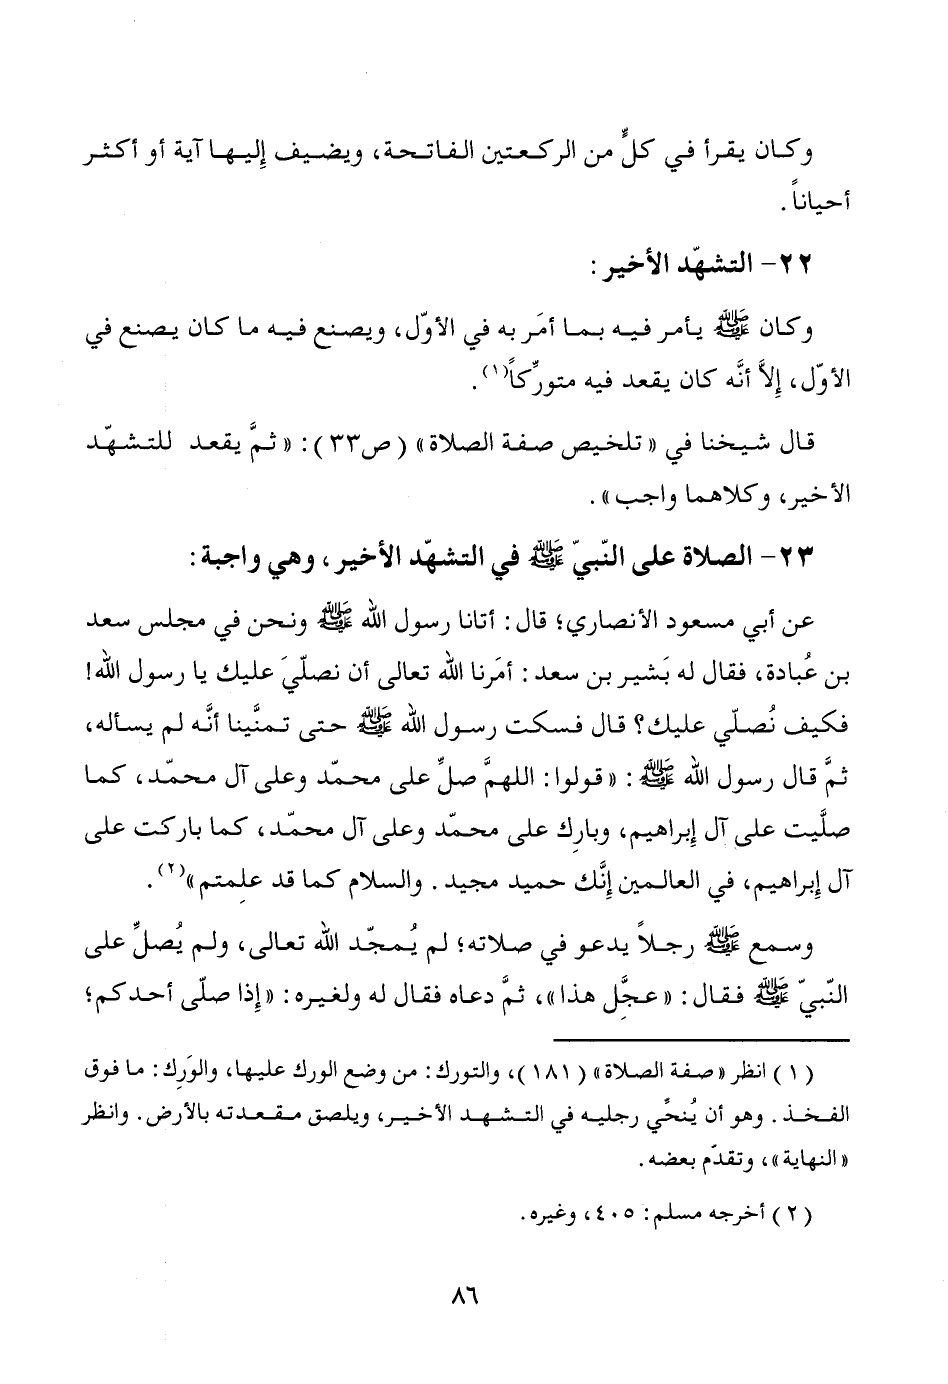 وكان يقرأ في كلٍّ من الركعتين الفاتحة، ويضيف إليها آية أو أكثر
أحياناً.
٢٢- التشهّد الأخير:
وكان ﷺ يأمر فيه بما أمَر به في الأوّل، ويصنع فيه ما كان يصنع في
الأوّل، إلاَّ أنَّه كان يقعد فيه متورِّكاً(١).
قال شيخنا في «تلخيص صفة الصلاة» (ص٣٣): «ثمَّ يقعد للتشهّد
الأخير، وكلاهما واجب».
٢٣- الصلاة على النّبيّ ﷺ في التشهّد الأخير، وهي واجبة:
عن أبي مسعود الأنصاري؛ قال: أتانا رسول الله ﷺ ونحن في مجلس سعد
بن عُبادة، فقال له بَشير بن سعد: أمَرنا الله تعالى أن نصلّيَ عليك يا رسول الله!
فكيف نُصلّي عليك؟ قال فسكت رسول الله ﷺ حتى تمنَّينا أنَّه لم يسأله،
ثمَّ قال رسول الله ﷺ: «قولوا: اللهمَّ صلِّ على محمّد وعلى آل محمّد، كما
صلَّيت على آل إبراهيم، وبارِك على محمّد وعلى آل محمّد، كما باركت على
آل إبراهيم، في العالمين إنَّك حميد مجيد. والسلام كما قد علمتم»(٢).
وسمع ﷺ رجلاً يدعو في صلاته؛ لم يُمجّد الله تعالى، ولم يُصلِّ على
النّبيّ ﷺ فقال: «عجَّل هذا»، ثمَّ دعاه فقال له ولغيره: «إذا صلّى أحدكم؛
(١) انظر «صفة الصلاة» (١٨١)، والتورك: من وضع الورك عليها، والوَرِك: ما فوق
الفخذ. وهو أن يُنحِّي رجليه في التشهد الأخير، ويلصق مقعدته بالأرض. وانظر
«النهاية»، وتقدّم بعضه.
(٢) أخرجه مسلم: ٤٠٥، وغيره.
٨٦